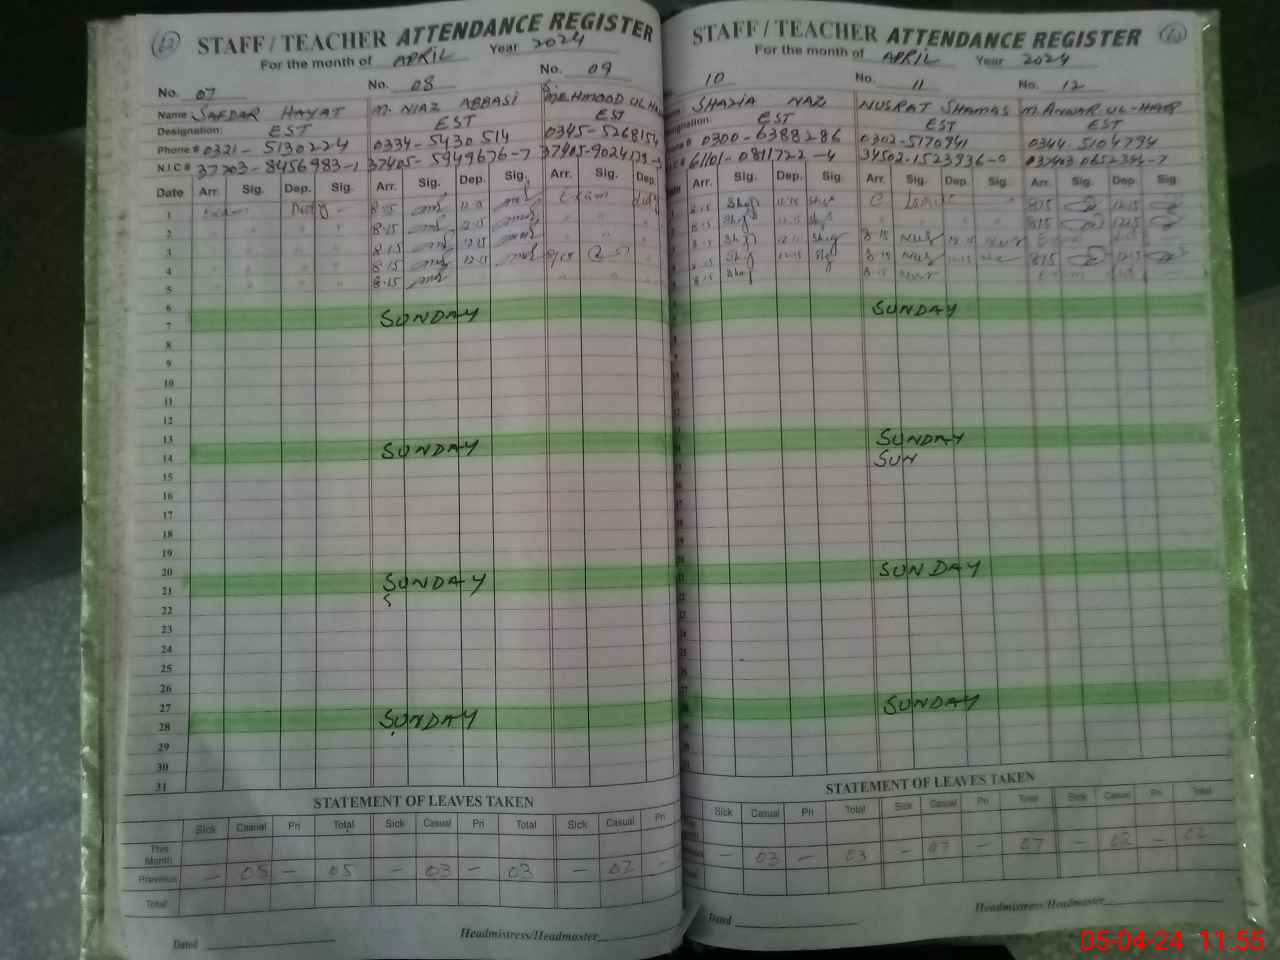 62 STAFF / TEACHER ATTENDANCE REGISTER
For the month of APRIL Year 2024
No. 07 No. 08 No. 09
Name SAFDAR HAYAT M. NIAZ ABBASI MEHMOOD UL
Designation: EST EST EST
Phone # 0321-5130224 0334-5430514 0345-5268154
N.I.C # 37203-8456983-1 37405-5949676-7 37405-9024179-
Date Arr. Sig. Dep. Sig. Arr. Sig. Dep. Sig. Arr. Sig. Dep.
1 Exam Duty 8-15 12-15 Exam duty
2 " " " " 8-15 12-15 " " "
3 " " " " 8-15 12-15
4 " " " " 8-15 12-15
5 " " " " 8-15
6
7 SUNDAY
8
9
10
11
12
13
14 SUNDAY
15
16
17
18
19
20
21 SUNDAY
22
23
24
25
26
27
28 SUNDAY
29
30
31
STATEMENT OF LEAVES TAKEN
Sick Casual Pri Total Sick Casual Pri Total Sick Casual Pri
This Month
Previous – 05 – 05 – 03 – 03 – 02 –
Total
Dated Headmistress/Headmaster
STAFF / TEACHER ATTENDANCE REGISTER
For the month of APRIL Year 2024
10 No. 11 No. 12
SHAZIA NAZ NUSRAT SHAMAS M. ANWAR-UL-HAQ
EST EST EST
0300-6388286 0302-5170941 0344-5104794
61101-0811722-4 34502-1523936-0 037403-0652344-7
Arr. Sig. Dep. Sig. Arr. Sig. Dep. Sig. Arr. Sig. Dep. Sig.
8-15 12-15 C Leave 815 1215
8-15 12-15 815 1215
8-15 12-15 8-15 Nus 12-15 Nus Exam
8-15 12-15 8-15 Nus 12-15 815 1215
8-15 8-15 Nus Exam
SUNDAY
SUNDAY
SUN
SUNDAY
SUNDAY
STATEMENT OF LEAVES TAKEN
Sick Casual Pri Total Sick Casual Pri Total Sick Casual Pri Total
– 03 – 03 – 07 – 07 – 02 – 02
Dated Headmistress/Headmaster
05-04-24 11:55